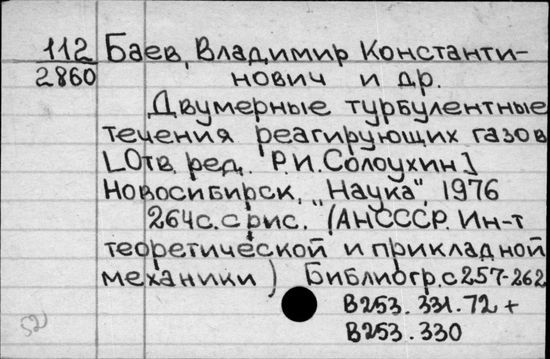 112 Баев, Владимир Константи-
2860 нович и др.
Двумерные турбулентные
течения реагирующих газов
[Отв. ред. Р.И. Солоухин]
Новосибирск, „Наука", 1976
264с. с рис. (АНСССР. Ин-т
теоретической и прикладной
механики) Библиогр. с 257-262
В253.331.72 +
В253.330
52